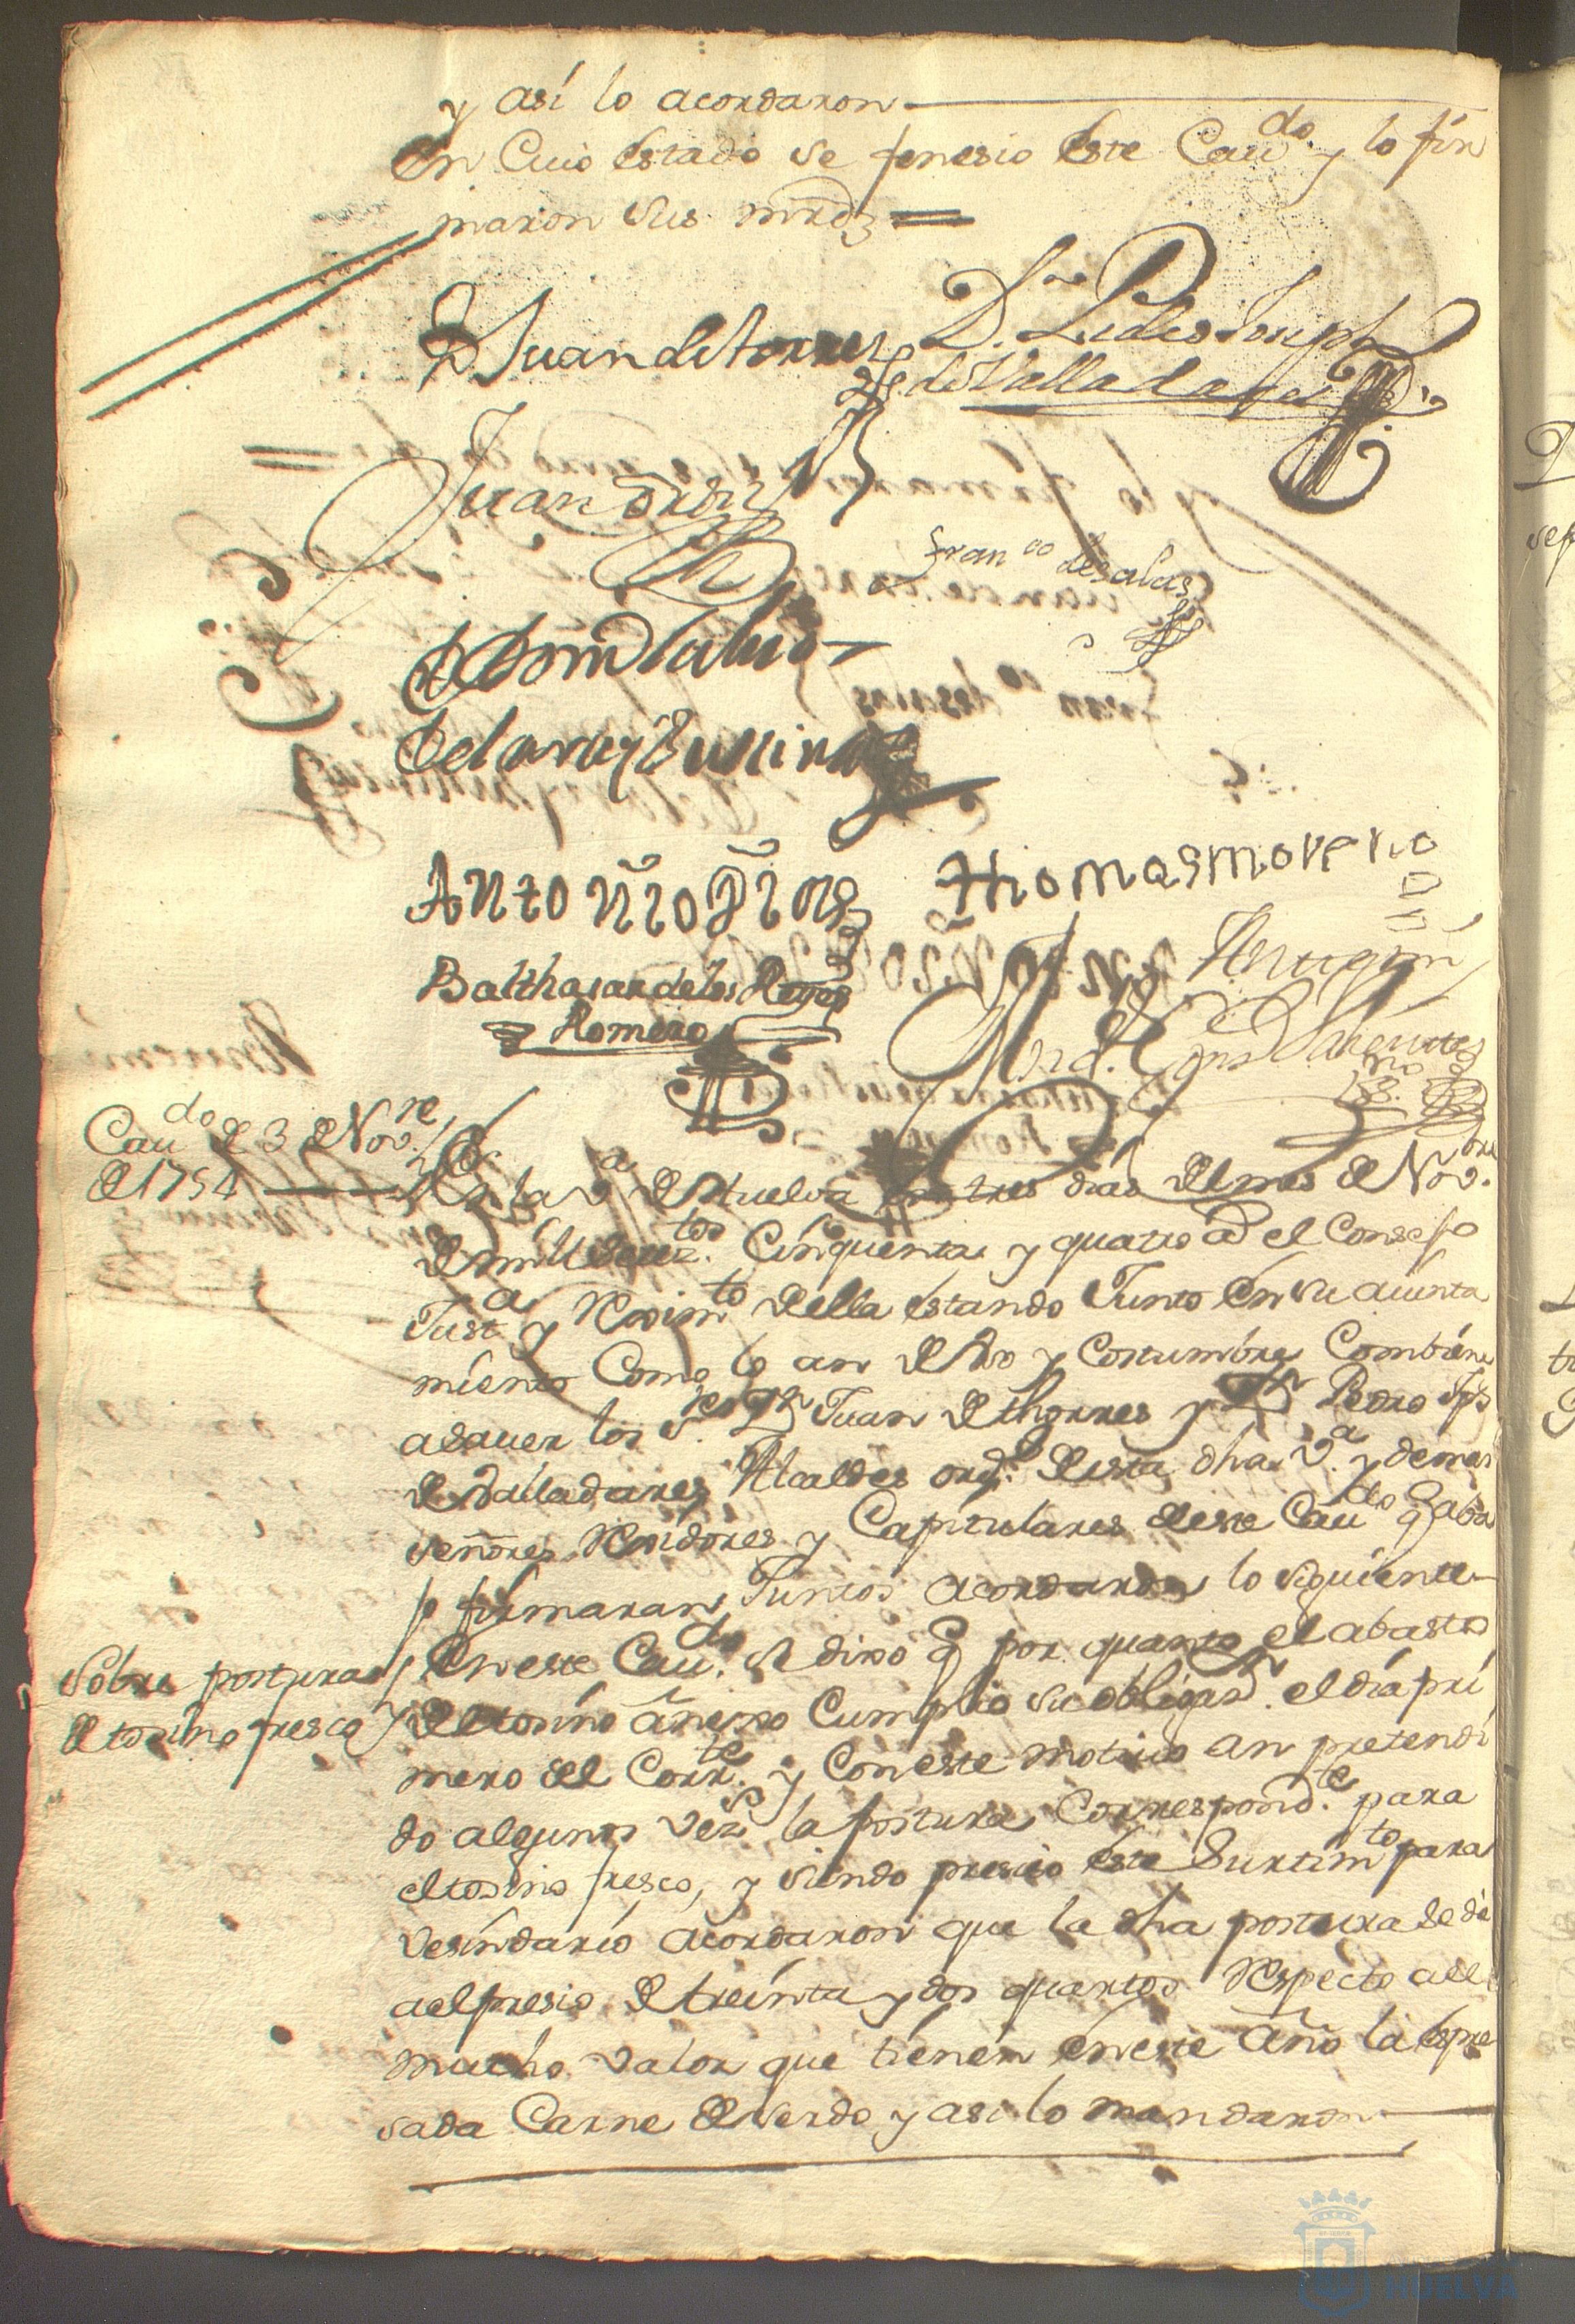 y así lo acordaron
En Cuio estado se fenesio este Caudo. y lo fir
maron sus mrds
Dn. Juan de torres
Dn. Pedro Joseph
de Valladares
Juan
Franco de salas
de la rosa y
Antoñio Dias
Thomas moreno
Balthasar de los Reyes
Romero
Caudo. de 3 de Novre.
de 1754
En la Va. de Huelva en tres dias del mes de Novbre.
de mill setetos. Cinquenta y quatro as. el Consejo
Justa. y Reximto della estando Junto en su aiunta
miento Como lo an de Uso y Costumbre Combiene
a sauer los Sres. Dn. Juan de thorres y Dn. Pedro Jph
de Valladares Alcaldes ords. desta dha Va. y demas
señores Rexidores y Capitulares deste Caudo. q abа
jo firmaran, Juntos acordaron lo siguiente
Sobre postura
de tosino fresco
En este Caudo. se dixo q por quanto el abasto
del tosino añexo Cumplio su obligasn. el dia pri
mero del Corrte. y Con este motiuo an pretendi
do algunos vezs. la postura Correspondte. para
el tosino fresco, y siendo presiso este Surtimto para
Vesindario acordaron que la dha postura se dé
a el presio de treinta y dos quartos Respecto a el
mucho valor que tienen en este año la expre
sada Carne de Serdo y asi lo mandaron
HUELVA